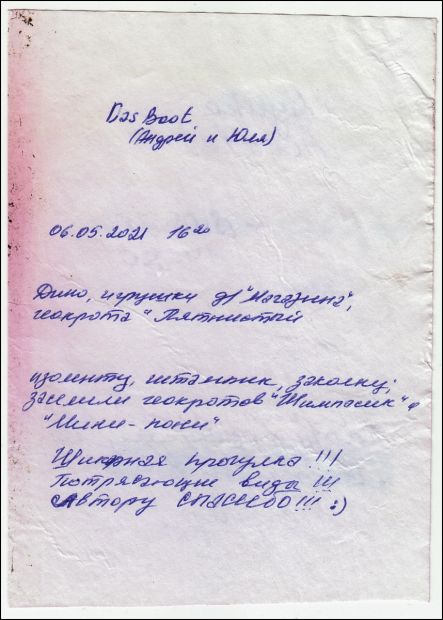 Das Boot
(Андрей и Юля)
06.05.2021 16²⁰
Дино, игрушки д/"Магазина",
геокрота "Пятнистый
изоленту, штампик, заколку;
заселили геокротов "Шимпасик" и
"Мини-пони"
Шикарная прогулка !!!
Потрясающие виды !!!
Автору СПАСИБО !!! :)